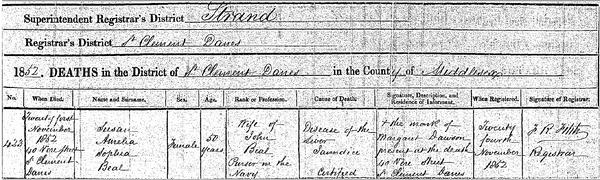 Superintendent Registrar's District Strand
Registrar's District St Clement Danes
1852. DEATHS in the District of St Clement Danes in the County of Middlesex
No. When Died. Name and Surname. Sex. Age. Rank or Profession. Cause of Death. Signature, Description, and Residence of Informant. When Registered. Signature of Registrar.
423
Twenty first
November
1852
40 Vere Street
St Clement
Danes
Susan
Amelia
Sophia
Beal
Female
50
years
Wife of
John
Beal
Purser in the
Navy
Disease of the
Liver
Jaundice
Certified
X the mark of
Margaret Dawson
present at the death
40 Vere Street
St Clement Danes
Twenty
fourth
November
1852
J R
Registrar